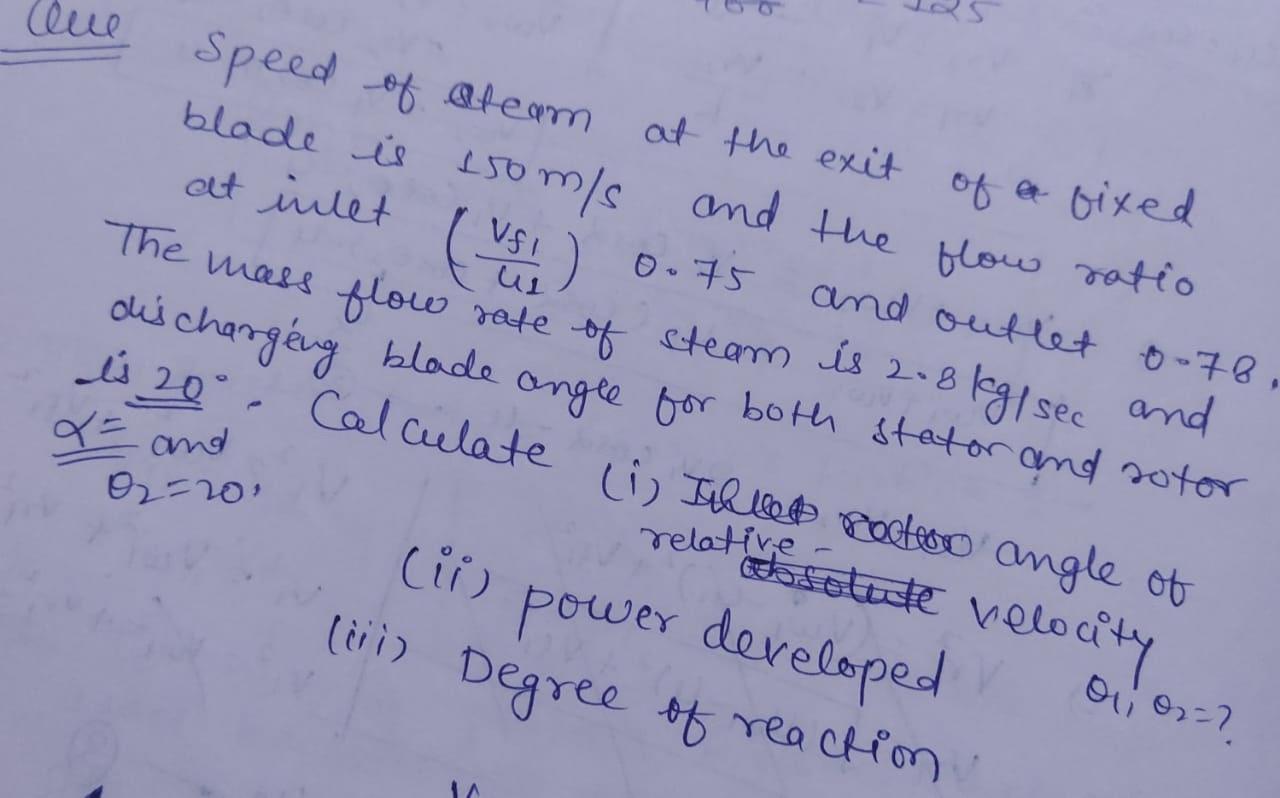 Que Speed of steam at the exit of a fixed
blade is 150 m/s and the flow ratio
at inlet (Vf1/u1) 0.75 and outlet 0.78.
The mass flow rate of steam is 2.8 kg/sec and
discharging blade angle for both stator and rotor
is 20°. Calculate (i) angle of
α = and
θ2=20°
relative velocity
θ1, θ2=?
(ii) power developed
(iii) Degree of reaction